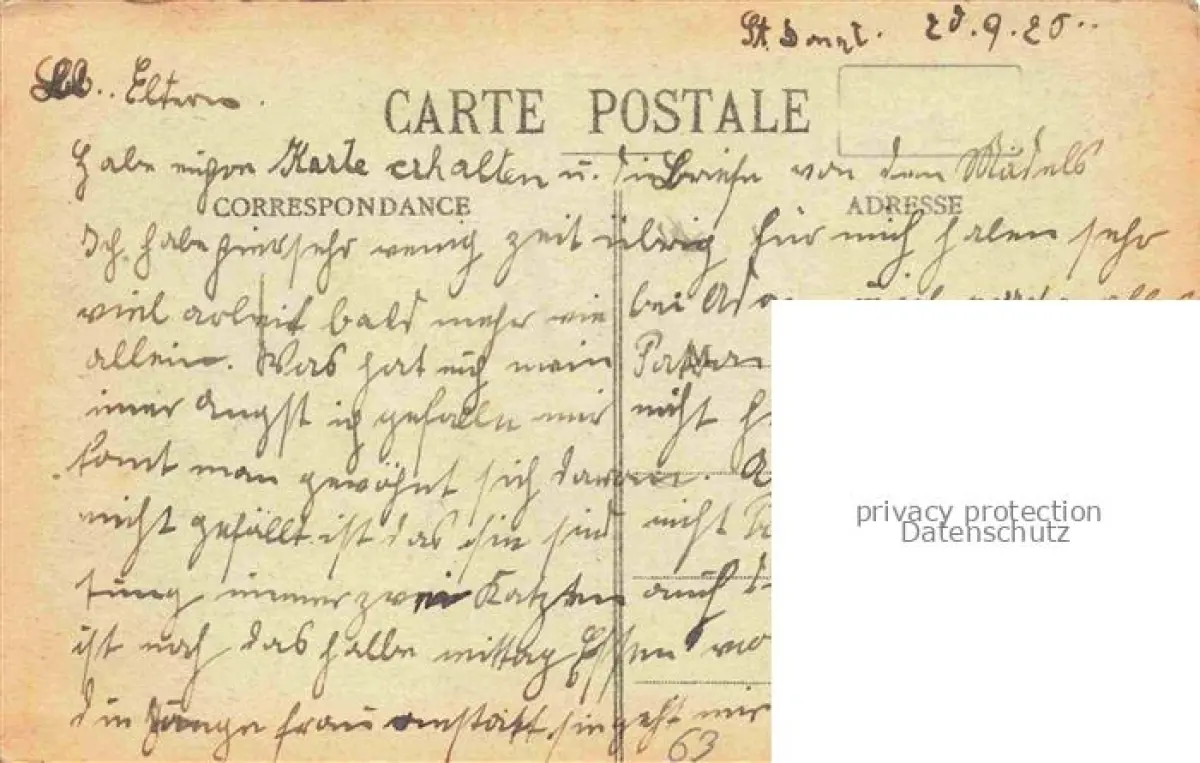 St. 28.9.25..
Lb.. Eltern.
CARTE POSTALE
Habe eigen Karte erhalten u. die Briefe von dem Mädels
CORRESPONDANCE
ADRESSE
Ich habe hier sehr wenig zeit übrig für mich haben sehr
viel arbeit bald mehr wie bei
allein. Was hat mein
imer Angst ich gefalle mir nicht
komt man gewöhnt sich daran.
nicht gefällt ist das sie sind nicht
immer zwei Katzen auch
ist noch das halbe mittag Essen
die junge frau sie geht mir
63
privacy protection
Datenschutz